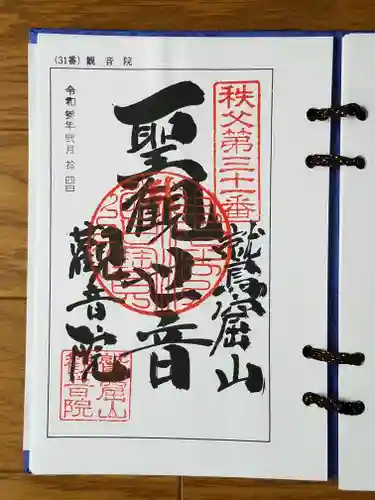 (31番) 観音院
令和参年弐月拾四日
秩父第三十一番
鷲窟山
聖觀世音
觀音院
鷲窟山
観音院